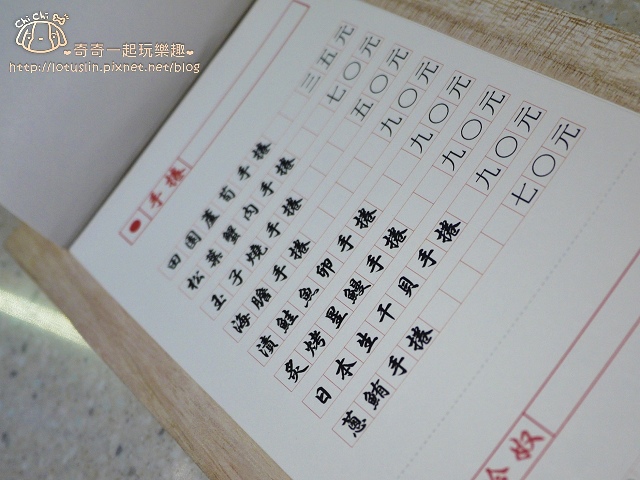 Chi Chi Bo
♥奇奇一起玩樂趣♥
http://lotuslin.pixnet.net/blog
●手捲
田園蘆筍手捲 三五元
松葉蟹肉手捲 七〇元
玉子燒手捲 五〇元
海膽手捲 九〇元
漬鮭魚卵手捲 九〇元
炙烤星鰻手捲 九〇元
日本生干貝手捲 九〇元
蔥鮪手捲 七〇元
冷奴